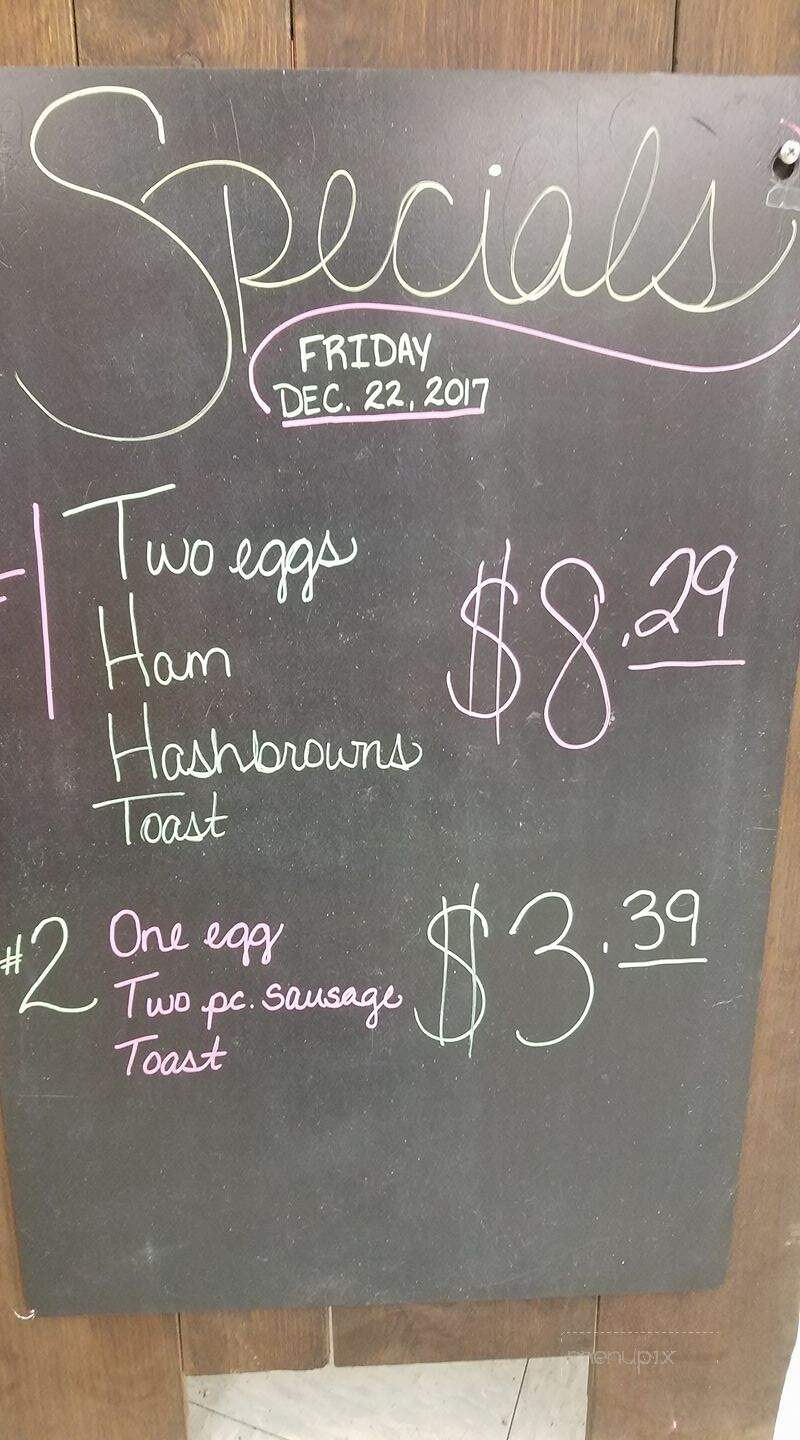 Specials
FRIDAY
DEC. 22, 2017
#1 Two eggs $8.29
Ham
Hashbrowns
Toast
#2 One egg $3.39
Two pc. sausage
Toast
menupix